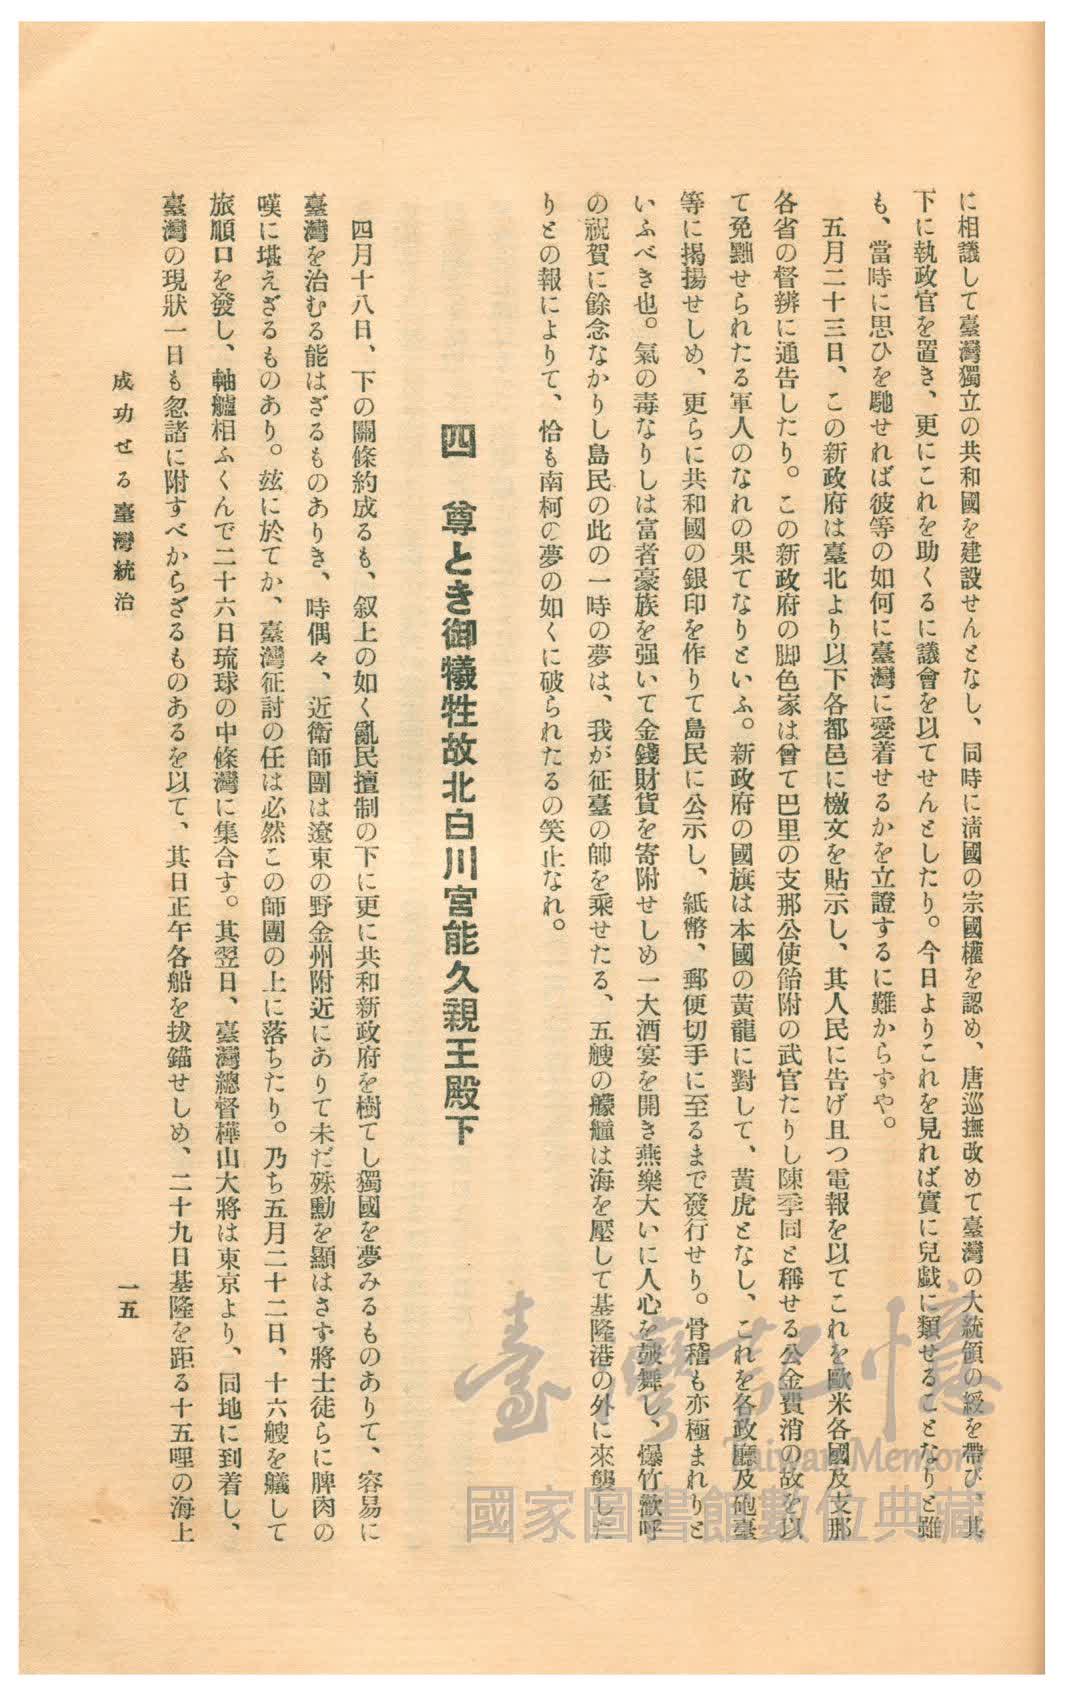 に相議して臺灣獨立の共和國を建設せんとなし、同時に淸國の宗國權を認め、唐巡撫改めて臺灣の大統領の綬を帶び、其
下に執政官を置き、更にこれを助くるに議會を以てせんとしたり。今日よりこれを見れば實に兒戲に類せることなりと雖
も、當時に思ひを馳せれば彼等の如何に臺灣に愛着せるかを立證するに難からずや。
五月二十三日、この新政府は臺北より以下各都邑に檄文を貼示し、其人民に告げ且つ電報を以てこれを歐米各國及支那
各省の督辨に通告したり。この新政府の脚色家は曾て巴里の支那公使館附の武官たりし陳季同と稱せる公金費消の故を以
て免黜せられたる軍人のなれの果てなりといふ。新政府の國旗は本國の黃龍に對して、黃虎となし、これを各政廳及砲臺
等に揭揚せしめ、更らに共和國の銀印を作りて島民に公示し、紙幣、郵便切手に至るまで發行せり。骨稽も亦極まれりと
いふべき也。氣の毒なりしは富者豪族を强いて金錢財貨を寄附せしめ一大酒宴を開き燕樂大いに人心を皷舞し、爆竹歡呼
の祝賀に餘念なかりし島民の此の一時の夢は、我が征臺の帥を乘せたる、五艘の艨艟は海を壓して基隆港の外に來襲した
りとの報によりて、恰も南柯の夢の如くに破られたるの笑止なれ。
四　尊とき御犧牲故北白川宮能久親王殿下
四月十八日、下の關條約成るも、叙上の如く亂民擅制の下に更に共和新政府を樹てし獨國を夢みるものありて、容易に
臺灣を治むる能はざるものありき、時偶々、近衛師團は遼東の野金州附近にありて未だ殊勳を顯はさず將士徒らに脾肉の
嘆に堪えざるものあり。玆に於てか、臺灣征討の任は必然この師團の上に落ちたり。乃ち五月二十二日、十六艘を艤して
旅順口を發し、軸艫相ふくんで二十六日琉球の中條灣に集合す。其翌日、臺灣總督樺山大將は東京より、同地に到着し、
臺灣の現狀一日も忽諸に附すべからざるものあるを以て、其日正午各船を拔錨せしめ、二十九日基隆を距る十五哩の海上
成功せる臺灣統治
一五
臺灣記憶
Taiwan Memory
國家圖書館數位典藏